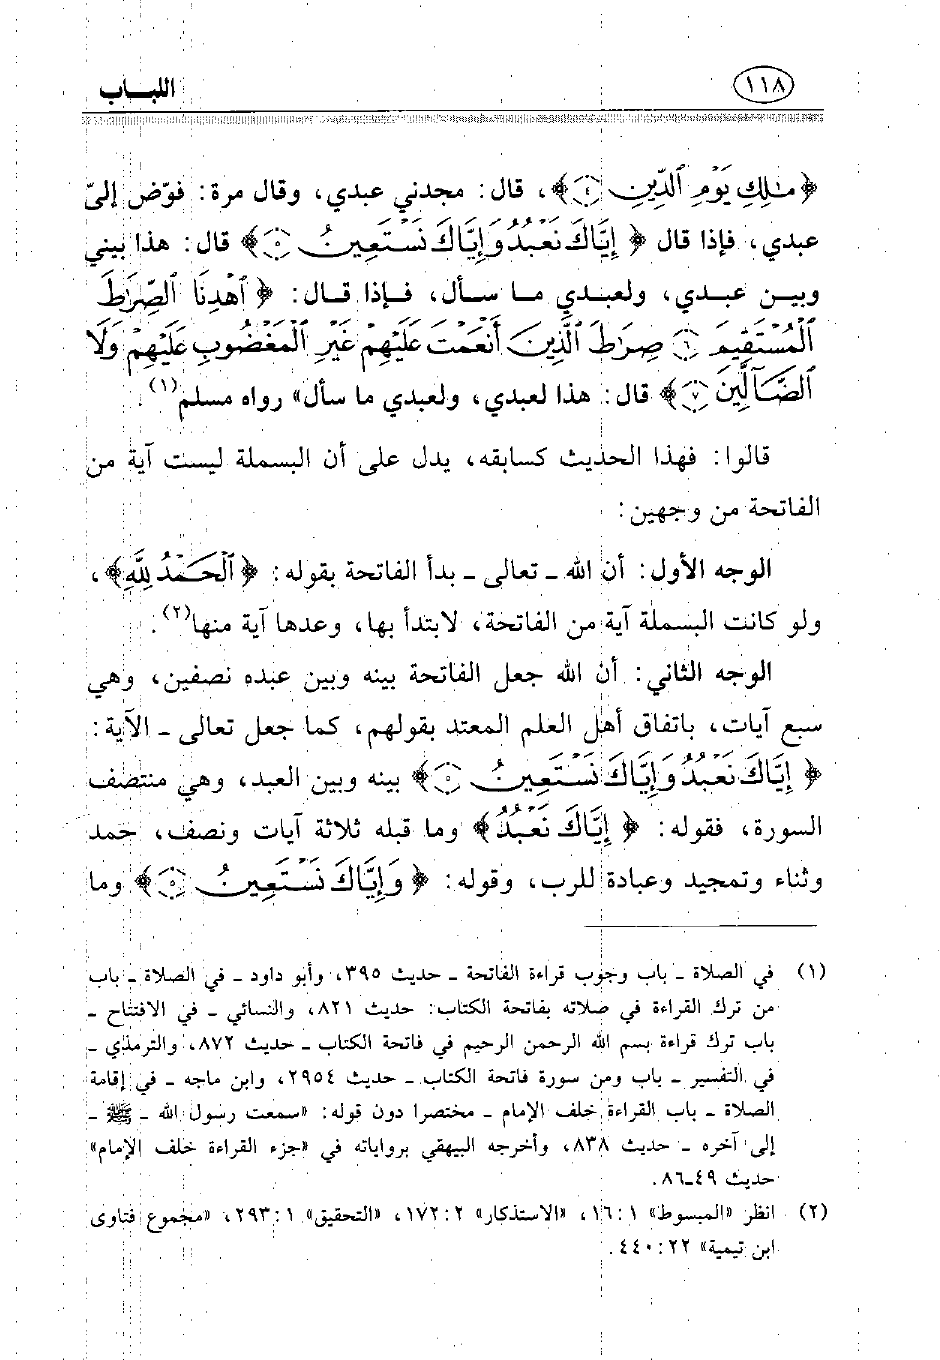 ١١٨
اللبـــاب
﴿مَـٰلِكِ يَوْمِ ٱلدِّينِ ﴿٤﴾﴾، قال: مجدني عبدي، وقال مرة: فوّض إليّ
عبدي، فإذا قال ﴿إِيَّاكَ نَعْبُدُ وَإِيَّاكَ نَسْتَعِينُ ﴿٥﴾﴾ قال: هذا بيني
وبيـن عبـدي، ولعبـدي مـا سـأل، فـإذا قـال: ﴿ٱهْدِنَا ٱلصِّرَٰطَ
ٱلْمُسْتَقِيمَ ﴿٦﴾ صِرَٰطَ ٱلَّذِينَ أَنْعَمْتَ عَلَيْهِمْ غَيْرِ ٱلْمَغْضُوبِ عَلَيْهِمْ وَلَا
ٱلضَّآلِّينَ ﴿٧﴾﴾ قال: هذا لعبدي، ولعبدي ما سأل» رواه مسلم(١).
قالوا: فهذا الحديث كسابقه، يدل على أن البسملة ليست آية من
الفاتحة من وجهين:
الوجه الأول: أن الله ـ تعالى ـ بدأ الفاتحة بقوله: ﴿ٱلْحَمْدُ لِلَّهِ﴾،
ولو كانت البسملة آية من الفاتحة، لابتدأ بها، وعدها آية منها(٢).
الوجه الثاني: أن الله جعل الفاتحة بينه وبين عبده نصفين، وهي
سبع آيات، باتفاق أهل العلم المعتد بقولهم، كما جعل تعالى ـ الآية:
﴿إِيَّاكَ نَعْبُدُ وَإِيَّاكَ نَسْتَعِينُ ﴿٥﴾﴾ بينه وبين العبد، وهي منتصف
السورة، فقوله: ﴿إِيَّاكَ نَعْبُدُ﴾ وما قبله ثلاثة آيات ونصف، حمد
وثناء وتمجيد وعبادة للرب، وقوله: ﴿وَإِيَّاكَ نَسْتَعِينُ ﴿٥﴾﴾ وما
(١) في الصلاة ـ باب وجوب قراءة الفاتحة ـ حديث ٣٩٥، وأبو داود ـ في الصلاة ـ باب
من ترك القراءة في صلاته بفاتحة الكتاب: حديث ٨٢١، والنسائي ـ في الافتتاح ـ
باب ترك قراءة بسم الله الرحمن الرحيم في فاتحة الكتاب ـ حديث ٨٧٢، والترمذي ـ
في التفسير ـ باب ومن سورة فاتحة الكتاب ـ حديث ٢٩٥٤، وابن ماجه ـ في إقامة
الصلاة ـ باب القراءة خلف الإمام ـ مختصرا دون قوله: «سمعت رسول الله ـ ﷺ ـ
إلى آخره ـ حديث ٨٣٨، وأخرجه البيهقي برواياته في «جزء القراءة خلف الإمام»
حديث ٤٩ـ٨٦.
(٢) انظر «المبسوط» ١:١٦، «الاستذكار» ٢:١٧٢، «التحقيق» ١:٢٩٣، «مجموع فتاوى
ابن تيمية» ٢٢:٤٤٠.